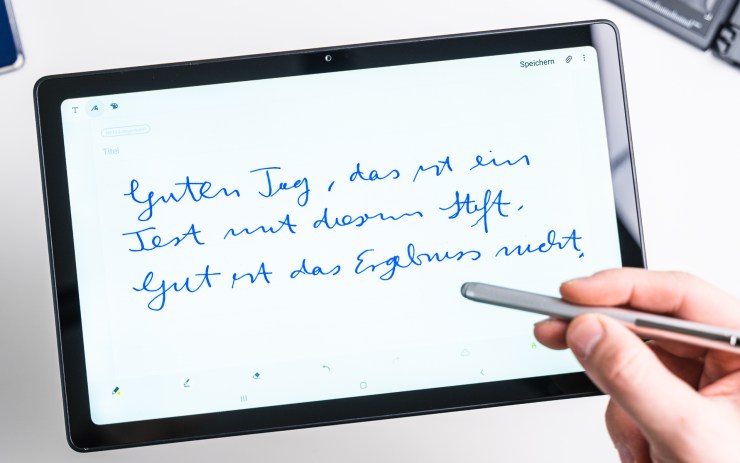 Speichern
T
Titel
Guten Tag, das ist ein
Test mit diesem Stift.
Gut ist das Ergebniss nicht.